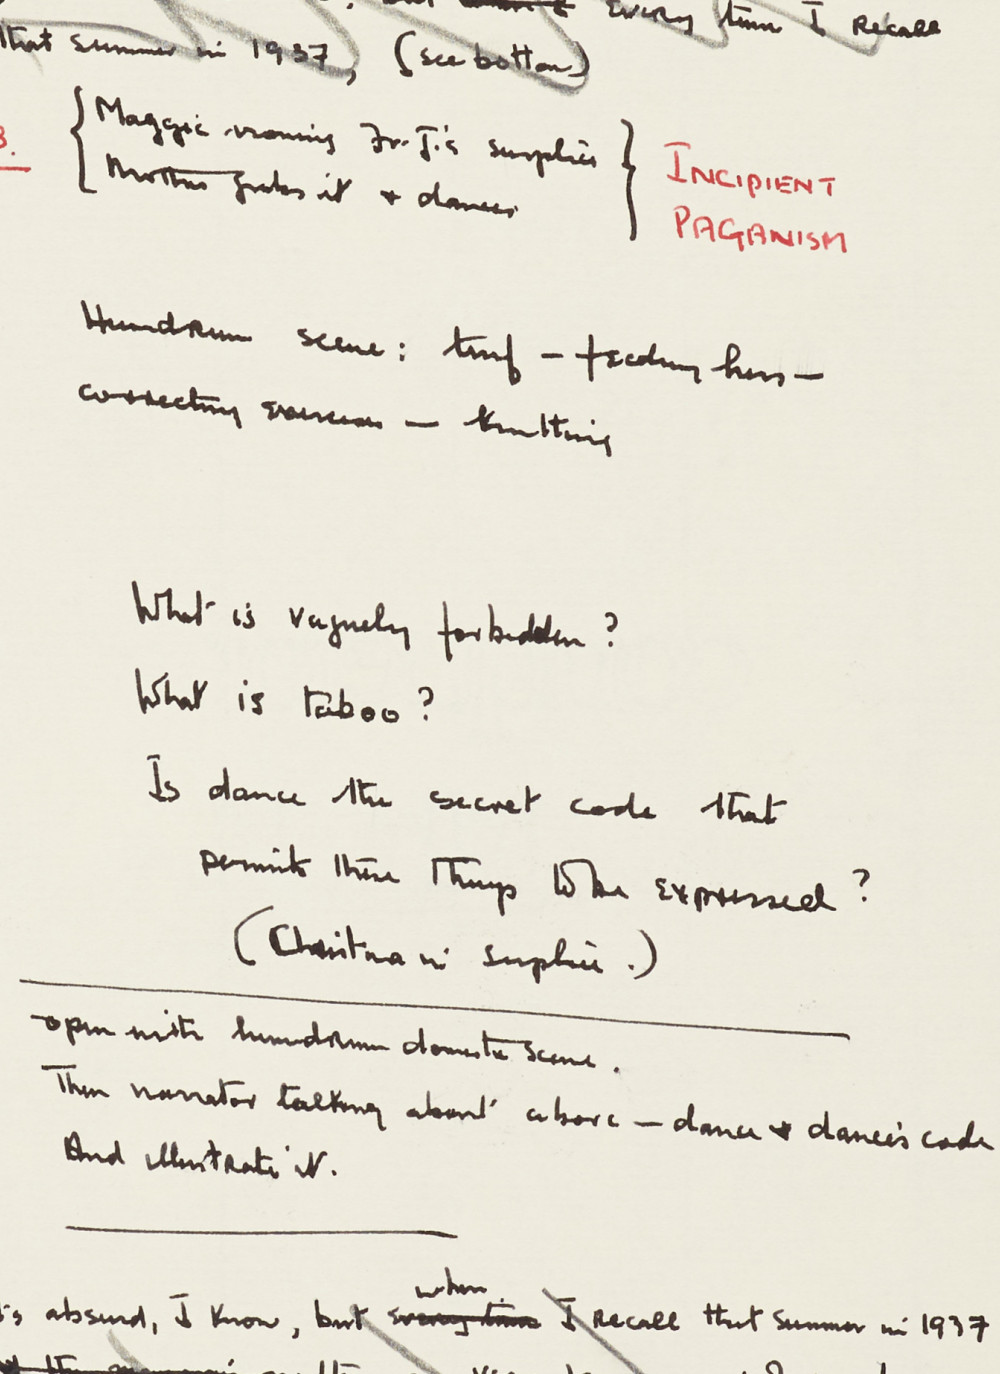 but every time I recall
that summer in 1937, (see bottom)
B. Maggie ironing Fr. J.'s surplice
INCIPIENT
Mother grabs it + dances
PAGANISM
Humdrum scene: turf – feeding hens –
correcting exercises – knitting
What is vaguely forbidden?
What is taboo?
Is dance the secret code that
permits these things to be expressed?
(Christina in surplice.)
open with humdrum domestic scene.
Then narrator talking about above – dance + dance's code
And illustrate it.
when
is absurd, I know, but every time I recall that summer in 1937